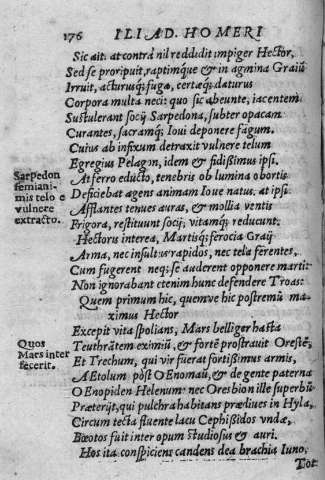 176 ILIAD. HOMERI
Sic ait. at contrà nil reddidit impiger Hector,
Sed se proripuit, raptimque & in agmina Graiû
Irruit, acturusq; fugã, certæq; daturus
Corpora multa neci: quo sic abeunte, iacentem
Sustulerant socij Sarpedona, subter opacam
Curantes, sacramq; Ioui deponere fagum.
Cuius ab infixum detraxit vulnere telum
Egregius Pelagon, idem & fidissimus ipsi.
Sarpedon
semiani-
mis telo e
vulnere
extracto.
At ferro educto, tenebris ob lumina obortis
Deficiebat agens animam Ioue natus. at ipsi
Afflantes tenues auras, & mollia ventis
Frigora, restituunt socij, vitamq; reducunt.
Hectoris interea, Martisq; ferocia Graij
Arma, nec insultus rapidos, nec tela ferentes,
Cum fugerent neq; se auderent opponere marti:
Non ignorabant etenim hunc defendere Troas:
Quem primum hic, quemve hic postremũ ma-
ximus Hector
Quos
Mars inter
fecerit.
Excepit vita spolians, Mars belliger hasta
Teuthrãtem eximiũ, & fortè prostravit Orestẽ,
Et Trechum, qui vir fuerat fortissimus armis,
AEtolum pòst OEnomaũ, & de gente paterna
OEnopiden Helenum: nec Oresbion ille superbũ
Præterijt, qui pulchra habitans prædiues in Hyla,
Circum tecta fluente lacu Cephissidos vndæ,
Bœotos fuit inter opum studiosus & auri.
Hos ita conspiciens candens dea brachia Iuno,
Tot